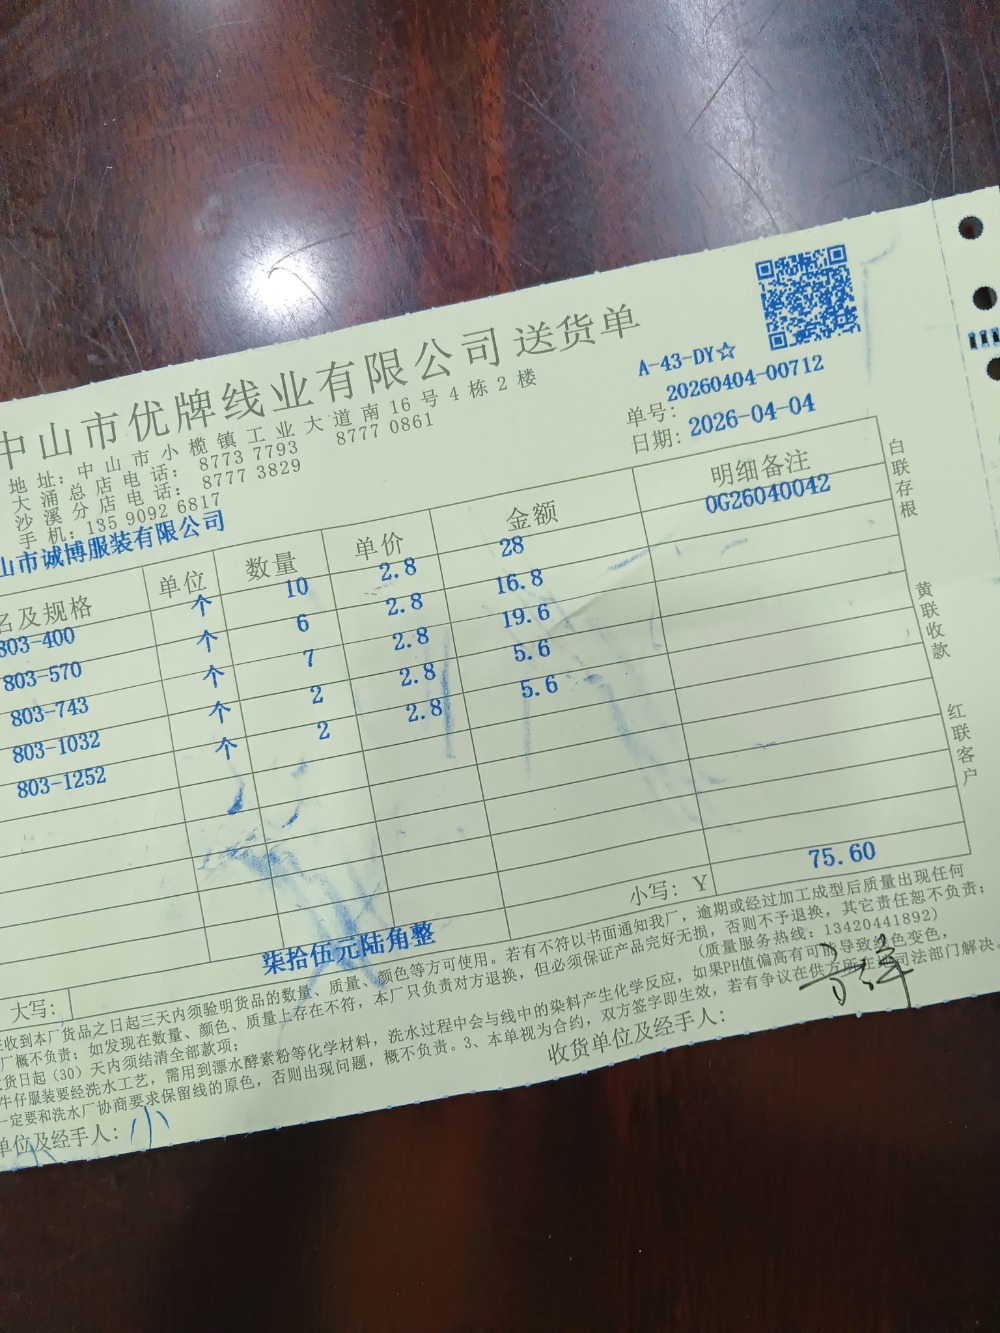 中山市优牌线业有限公司 送货单
地址：中山市小榄镇工业大道南16号4栋2楼
大涌总店电话：8773 7793 8777 0861
沙溪分店电话：8777 3829
手机：135 9092 6817
A-43-DY☆
单号：20260404-00712
日期：2026-04-04
山市诚博服装有限公司
名及规格 单位 数量 单价 金额 明细备注
803-400 个 10 2.8 28 OG26040042
803-570 个 6 2.8 16.8
803-743 个 7 2.8 19.6
803-1032 个 2 2.8 5.6
803-1252 个 2 2.8 5.6
大写： 柒拾伍元陆角整 小写：￥ 75.60
收到本厂货品之日起三天内须验明货品的数量、质量、颜色等方可使用。若有不符以书面通知我厂，逾期或经过加工成型后质量出现任何
厂概不负责；如发现在数量、颜色、质量上存在不符，本厂只负责对方退换，但必须保证产品完好无损，否则不予退换，其它责任恕不负责；
货日起（30）天内须结清全部款项；（质量服务热线：13420441892）
牛仔服装要经洗水工艺，需用到漂水酵素粉等化学材料，洗水过程中会与线中的染料产生化学反应，如果PH值偏高有可能导致线色变色，
一定要和洗水厂协商要求保留线的原色，否则出现问题，概不负责。3、本单视为合约，双方签字即生效，若有争议在供方所在地司法部门解决。
单位及经手人： 小
收货单位及经手人：
白联存根
黄联收款
红联客户